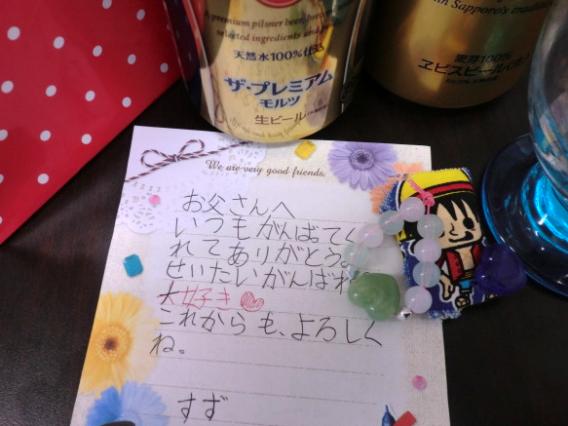 A premium pilsner beer
selected ingredients and
天然水100%仕込
ザ・プレミアム
モルツ
生ビール
with Sapporo's tradition
麦芽100%
ヱビスビール
We are very good friends.
お父さんへ
いつもがんばてく
れてありがとう。
せいたいがんばれ
大好き
これからも、よろしく
ね。
すず